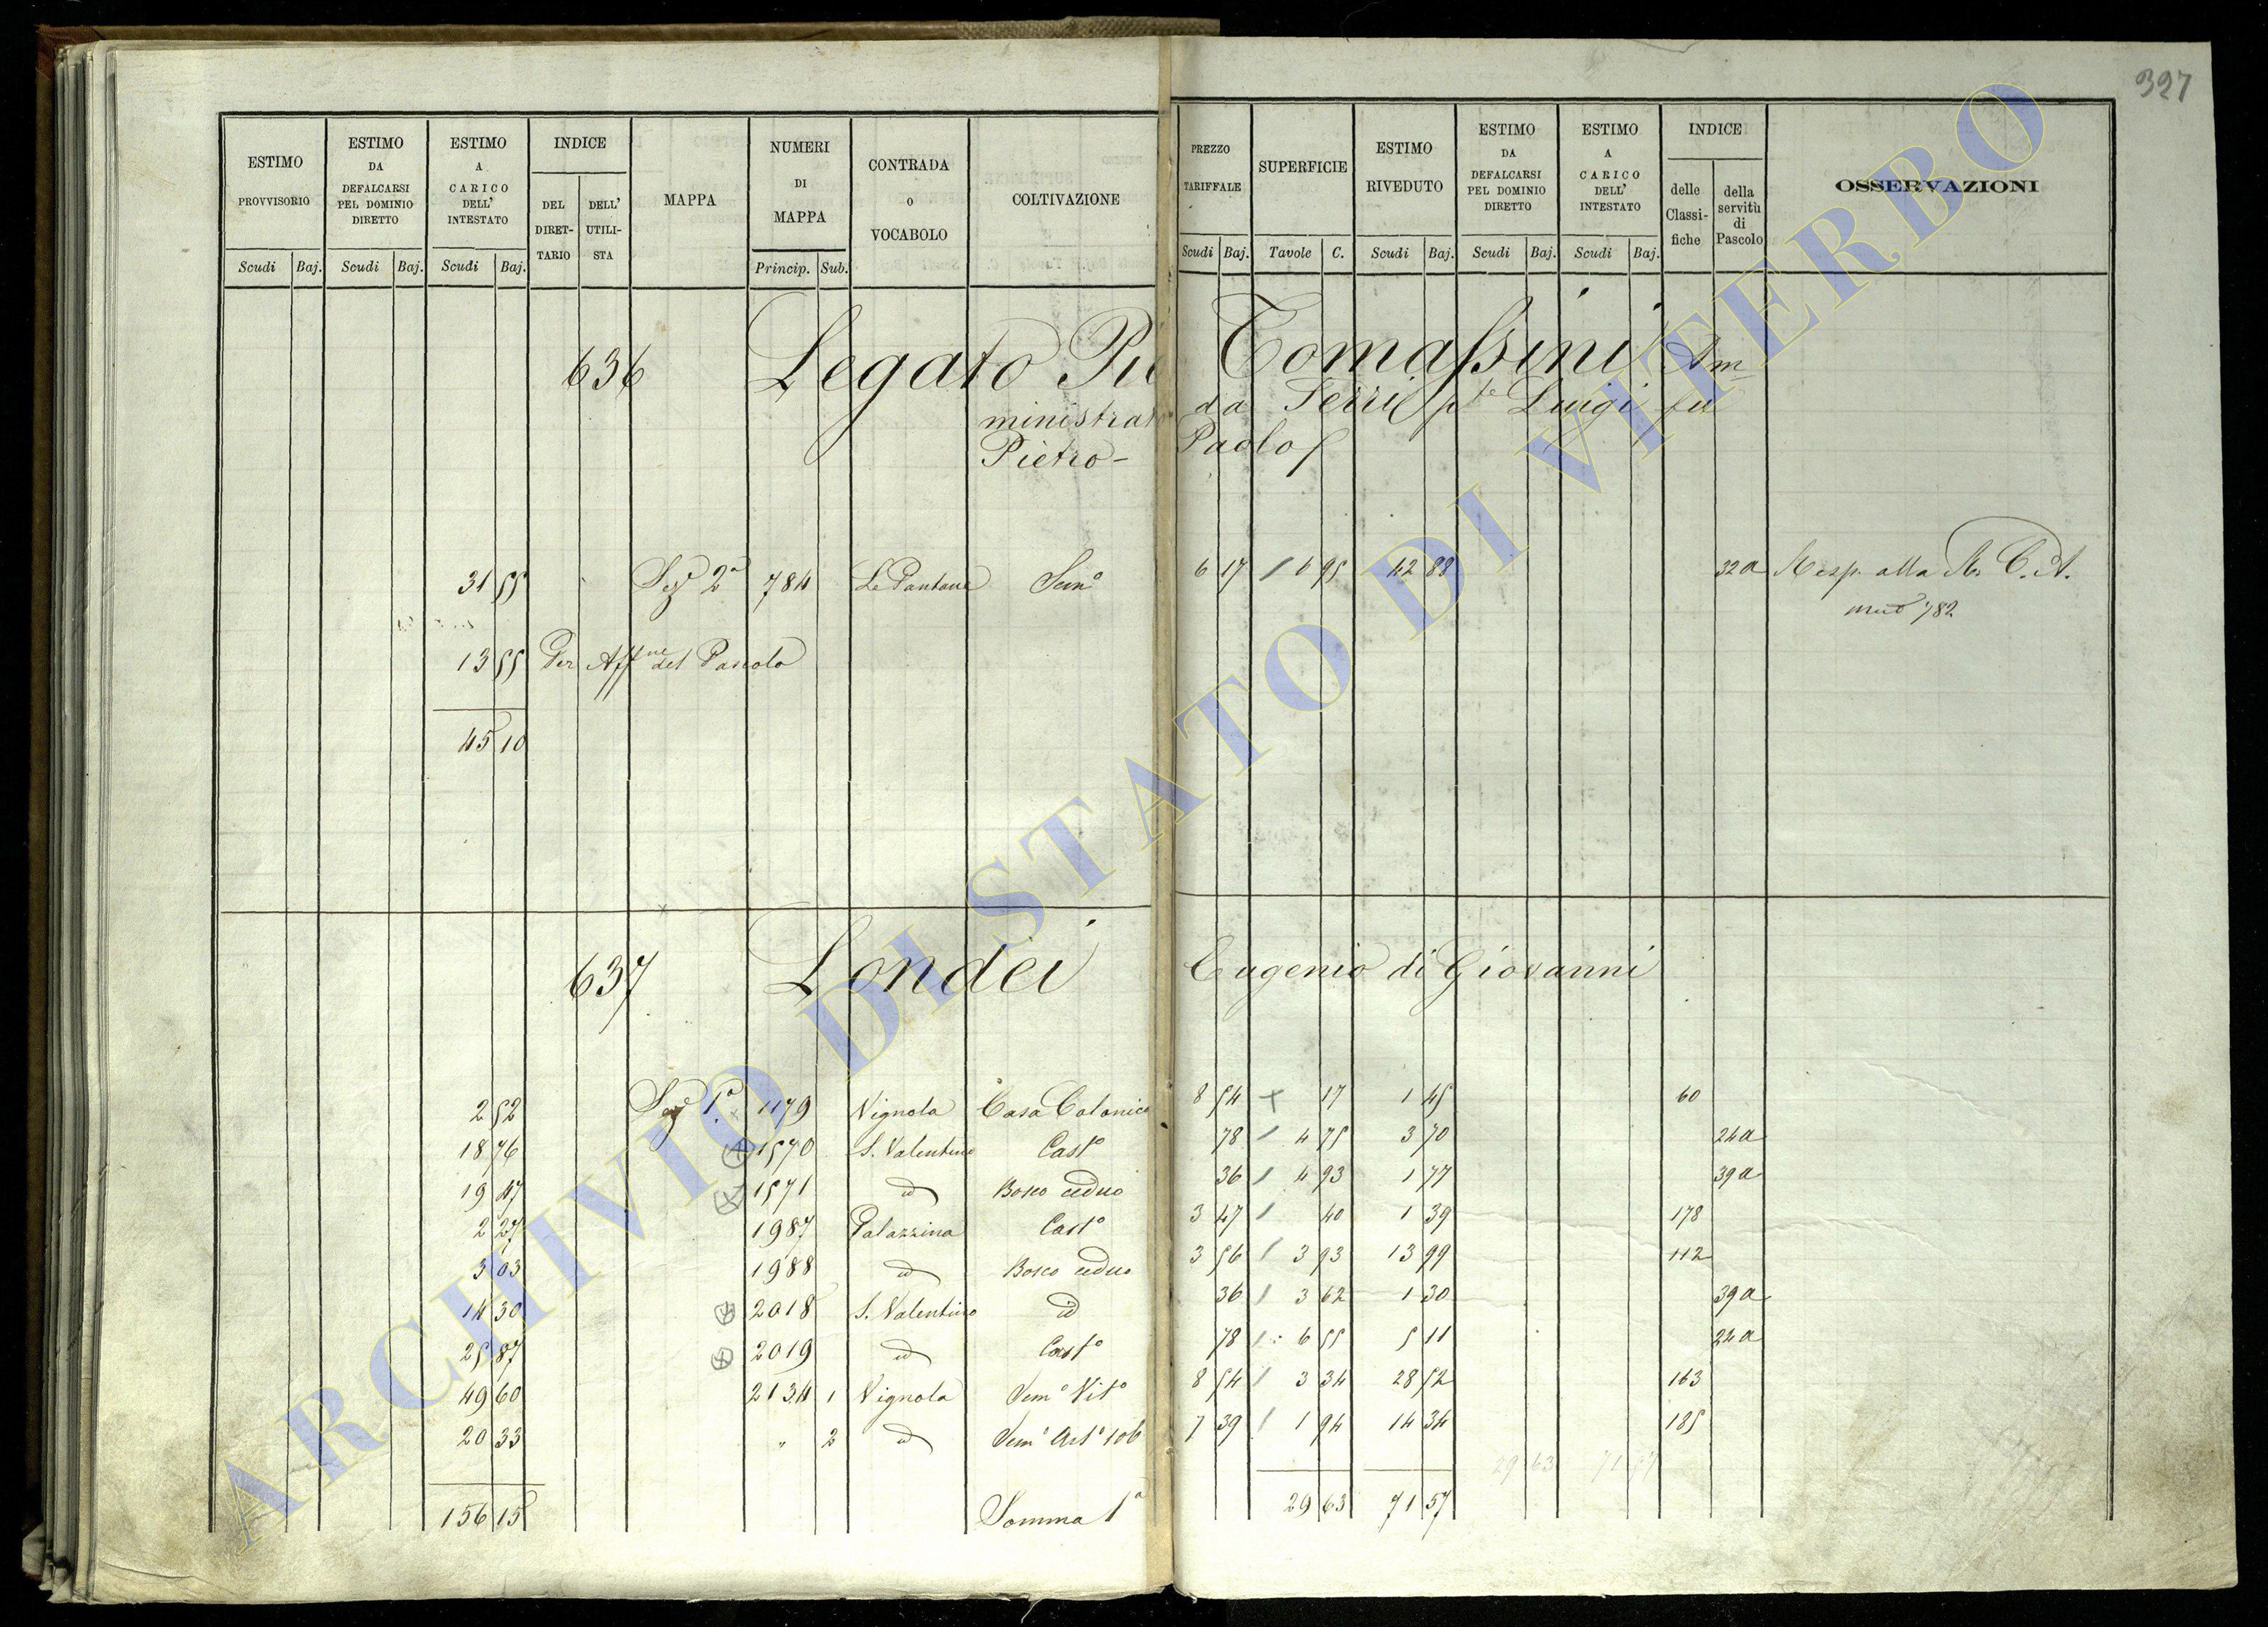 327
ESTIMO PROVVISORIO Scudi Baj. ESTIMO DA DEFALCARSI PEL DOMINIO DIRETTO Scudi Baj. ESTIMO A CARICO DELL' INTESTATO Scudi Baj. INDICE DEL DIRETTARIO DELL' UTILISTA MAPPA NUMERI DI MAPPA Princip. Sub. CONTRADA O VOCABOLO COLTIVAZIONE PREZZO TARIFFALE Scudi Baj. SUPERFICIE Tavole C. ESTIMO RIVEDUTO Scudi Baj. ESTIMO DA DEFALCARSI PEL DOMINIO DIRETTO Scudi Baj. ESTIMO A CARICO DELL' INTESTATO Scudi Baj. INDICE delle Classifiche della servitù di Pascolo OSSERVAZIONI
636 Legato Pio Tomassini Am
ministrato da Serri pte Luigi fu
Pietro-Paolo
31 55 Sez 2a 784 Le Pantane Semo 6 17 6 95 42 88 32a Resp. alla R. C. A.
782
13 55 Per Affne del Pascolo
45 10
637 Londei Eugenio di Giovanni
2 52 Sez 1a 1179 Vignola Casa Colonica 8 54 + 17 1 45 60
18 76 1570 S. Valentino Casto 78 / 4 75 3 70 24a
19 47 1571 id Bosco ceduo 36 / 4 93 1 77 39a
2 27 1987 Palazzina Casto 3 47 / 40 1 39 178
3 03 1988 id Bosco ceduo 3 56 / 3 93 13 99 112
14 30 2018 S. Valentino id 36 / 3 62 1 30 39a
25 87 2019 id Casto 78 / 6 55 5 11 24a
49 60 2134 1 Vignola Semo Vito 8 54 / 3 34 28 52 163
20 33 " 2 id Semo Arto 106 7 39 / 1 94 14 34 185
29 63 71 57
156 15 Somma 1a 29 63 71 57
ARCHIVIO DI STATO DI VITERBO